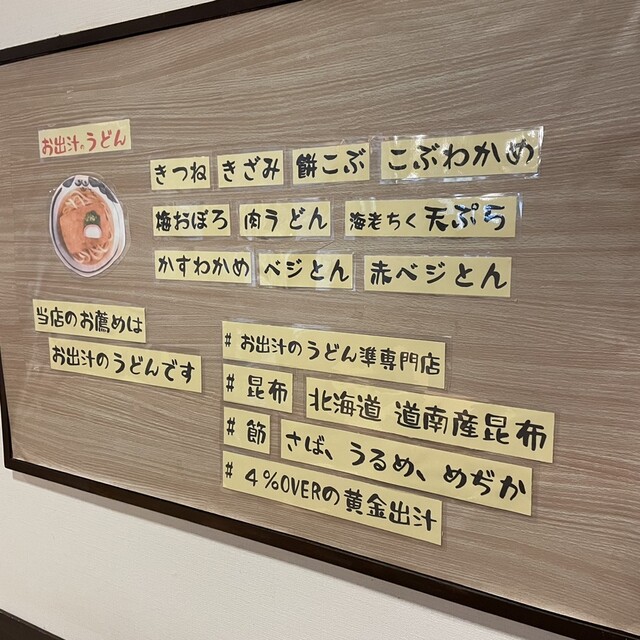 お出汁のうどん
きつね きざみ 餅こぶ こぶわかめ
梅おぼろ 肉うどん 海老ちく天ぷら
かすわかめ ベジとん 赤ベジとん
当店のお薦めは
お出汁のうどんです
# お出汁のうどん準専門店
# 昆布 北海道 道南産昆布
# 節 さば、うるめ、めぢか
# 4%OVERの黄金出汁